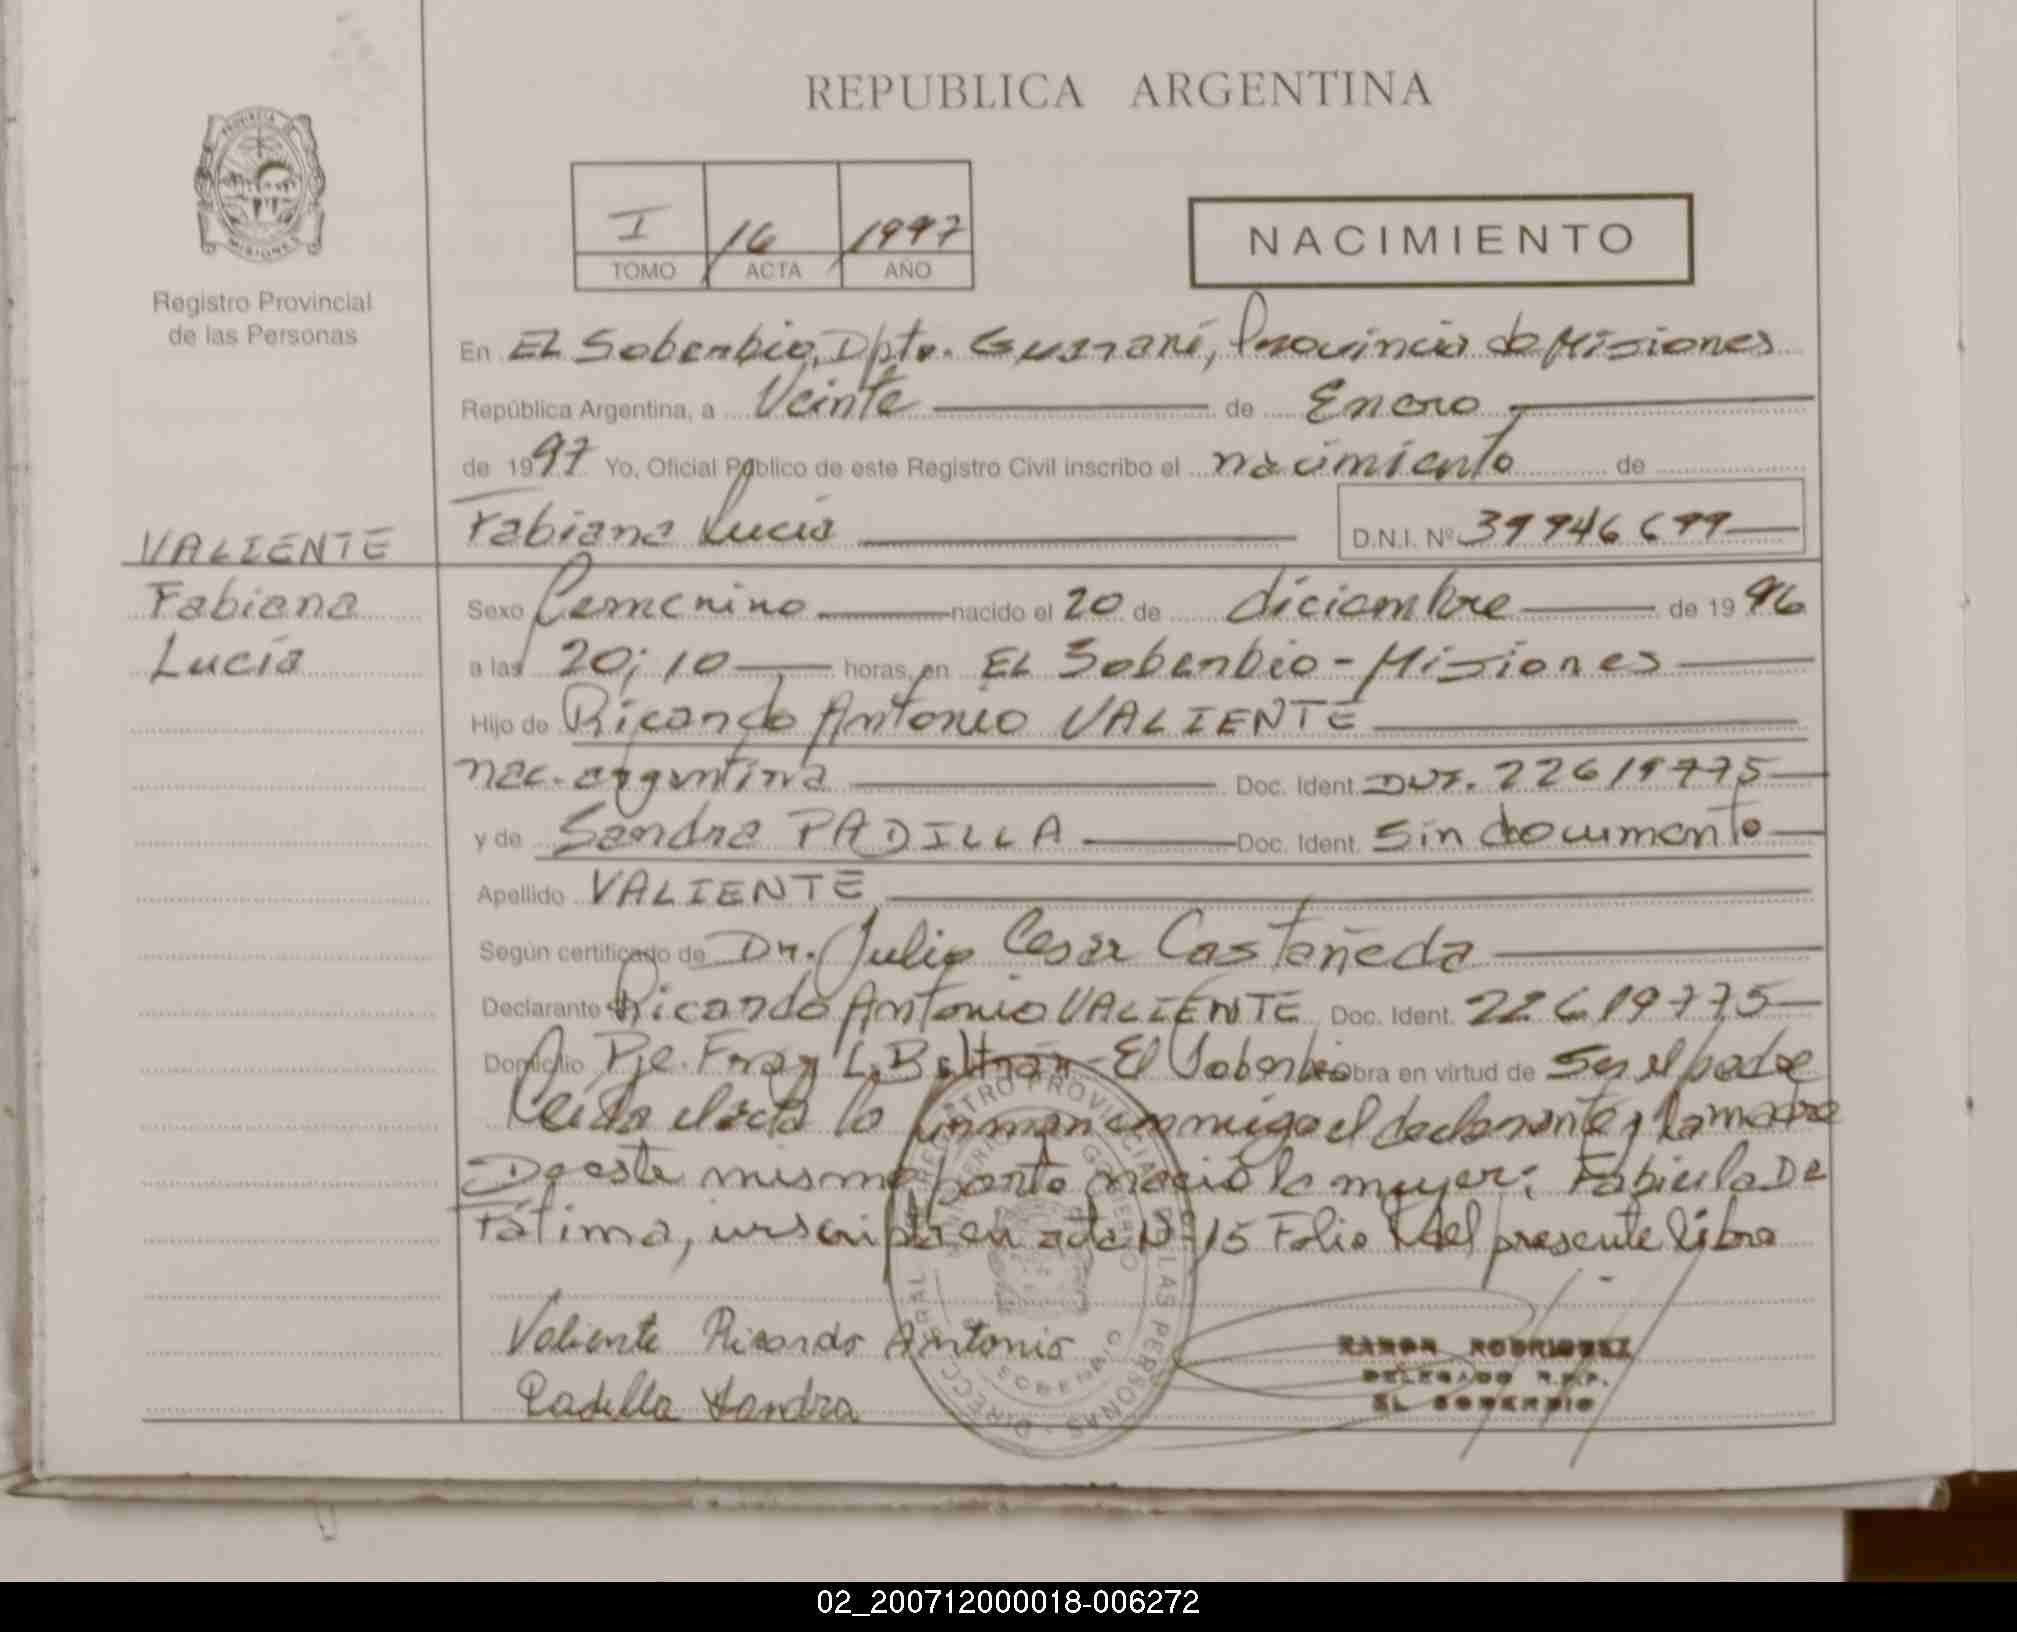 REPUBLICA ARGENTINA
PROVINCIA DE
MISIONES
Registro Provincial
de las Personas
I 16 1997
TOMO ACTA AÑO
NACIMIENTO
En EL Soberbio, Dpto. Guaraní, Provincia de Misiones
República Argentina, a Veinte de Enero
de 1997 Yo, Oficial Público de este Registro Civil inscribo el nacimiento de
Fabiana Lucía D.N.I. Nº 39946699
VALIENTE
Fabiana
Lucía
Sexo Femenino nacido el 20 de diciembre de 1996
a las 20;10 horas, en EL Soberbio - Misiones
Hijo de Ricardo Antonio VALIENTE
nac. argentina Doc. Ident. DNI. 22619775
y de Sandra PADILLA Doc. Ident. Sin documento
Apellido VALIENTE
Según certificado de Dr. Julio Cesar Castañeda
Declarante Ricardo Antonio VALIENTE Doc. Ident. 22619775
Domicilio Pje. Fray L. Beltrán - El Soberbio Obra en virtud de Ser el padre
Leida el acta la firman conmigo el declarante y la madre
De este mismo parto nació la mujer: Fabiula De
Fátima, inscripta en acta Nº 15 Folio del presente libro
Valiente Ricardo Antonio
Padilla Sandra
RAMON RODRIGUEZ
DELEGADO R.P.P.
EL SOBERBIO
REGISTRO PROVINCIAL DE LAS PERSONAS
02_200712000018-006272